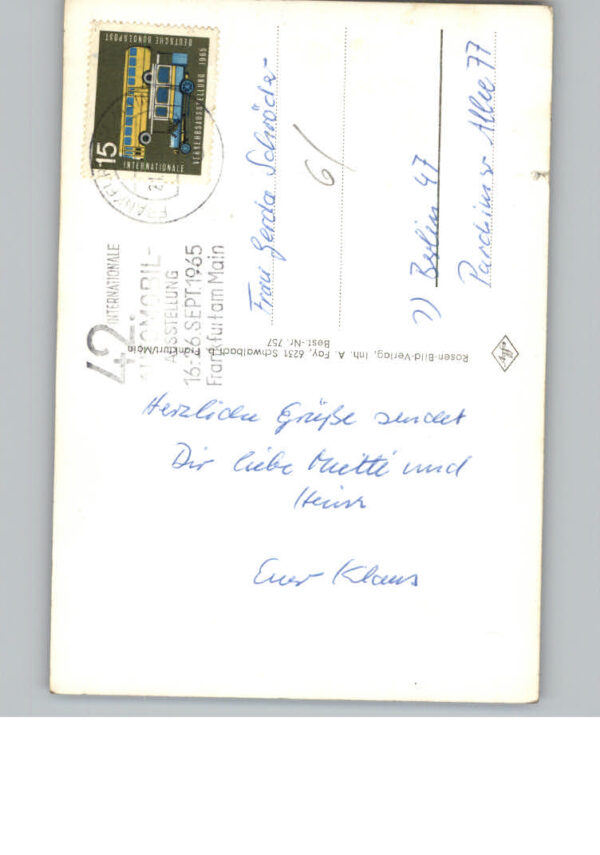 Herzliche Grüße sendet
Dir liebe Mutti und
Heinz
Euer Klaus
Frau Gerda Schröder
1) Berlin 47
Parchimer Allee 77
6/
DEUTSCHE BUNDESPOST
INTERNATIONALE
VERKEHRSAUSSTELLUNG 1965
15
FRANKFURT
42.
INTERNATIONALE
AUTOMOBIL-
AUSSTELLUNG
16.-26.SEPT.1965
Frankfurt am Main
Rosen-Bild-Verlag, Inh. A. Fay, 6231 Schwalbach b. Frankfurt/Main
Best.-Nr. 757